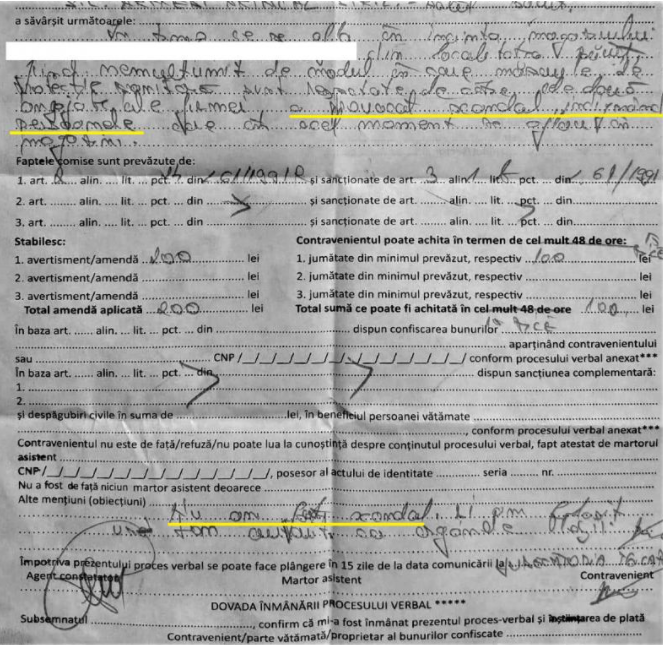 a săvârșit următoarele:
În timp ce se afla în incinta magazinului
din localitatea
fiind nemulțumit de modul în care măsurile de
protecție sanitară sunt respectate de către cele două
angajate ale firmei a provocat scandal, indignând
persoanele care în acel moment se aflau în
magazin.
Faptele comise sunt prevăzute de:
1. art. 2 alin. ... lit. ... pct. ... din 61/1991 R și sancționate de art. 3 alin 1 lit. b pct. ... din 61/1991
2. art. ... alin. ... lit. ... pct. ... din ... și sancționate de art. ... alin. ... lit. ... pct. ... din ...
3. art. ... alin. ... lit. ... pct. ... din ... și sancționate de art. ... alin. ... lit. ... pct. ... din ...
Stabilesc: Contravenientul poate achita în termen de cel mult 48 de ore:
1. avertisment/amendă 200 lei 1. jumătate din minimul prevăzut, respectiv 100 lei
2. avertisment/amendă ... lei 2. jumătate din minimul prevăzut, respectiv ... lei
3. avertisment/amendă ... lei 3. jumătate din minimul prevăzut, respectiv ... lei
Total amendă aplicată 200 lei Total sumă ce poate fi achitată în cel mult 48 de ore 100 lei
În baza art. ... alin. ... lit. ... pct. ... din ... dispun confiscarea bunurilor
... aparținând contravenientului
sau ... CNP /_/_/_/_/_/_/_/_/_/_/_/_/_/ conform procesului verbal anexat***
În baza art. ... alin. ... lit. ... pct. ... din ... dispun sancțiunea complementară:
1. ...
2. ...
și despăgubiri civile în suma de ... lei, în beneficiul persoanei vătămate ...
..., conform procesului verbal anexat***
Contravenientul nu este de față/refuză/nu poate lua la cunoștință despre conținutul procesului verbal, fapt atestat de martorul
asistent ...
CNP /_/_/_/_/_/_/_/_/_/_/_/_/_/, posesor al actului de identitate ... seria ... nr. ...
Nu a fost de față niciun martor asistent deoarece ...
Alte mențiuni (obiecțiuni) Nu am făcut scandal.
cu organele
Împotriva prezentului proces verbal se poate face plângere în 15 zile de la data comunicării la JUDECĂTORIA
Agent constatator Martor asistent Contravenient
DOVADA ÎNMÂNĂRII PROCESULUI VERBAL *****
Subsemnatul ..., confirm că mi-a fost înmânat prezentul proces-verbal și înștiințarea de plată
Contravenient/parte vătămată/proprietar al bunurilor confiscate ...